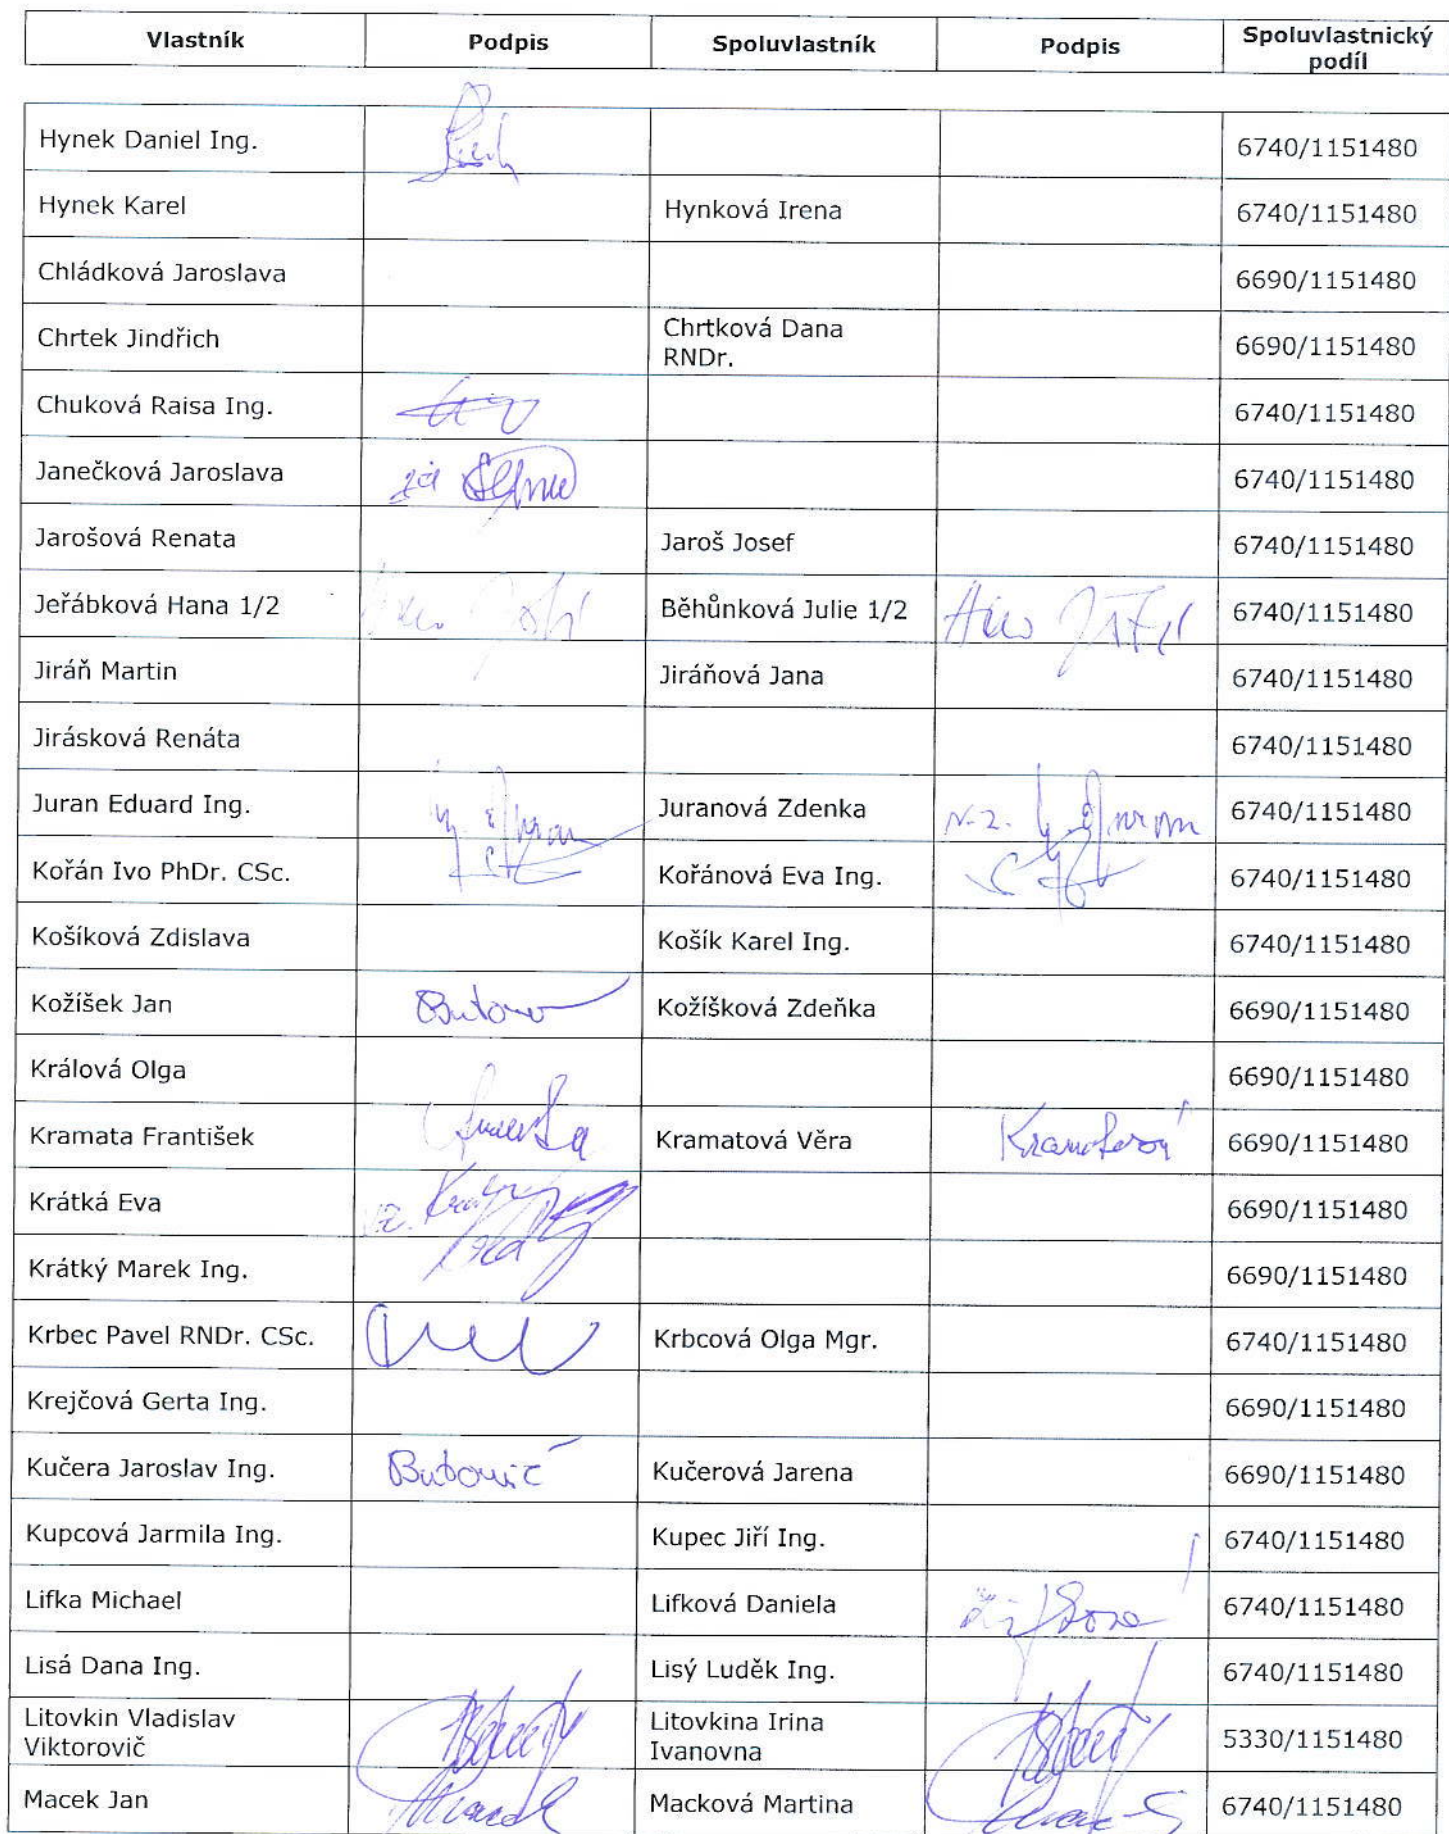 Vlastník Podpis Spoluvlastník Podpis Spoluvlastnický podíl
Hynek Daniel Ing. 6740/1151480
Hynek Karel Hynková Irena 6740/1151480
Chládková Jaroslava 6690/1151480
Chrtek Jindřich Chrtková Dana RNDr. 6690/1151480
Chuková Raisa Ing. 6740/1151480
Janečková Jaroslava 6740/1151480
Jarošová Renata Jaroš Josef 6740/1151480
Jeřábková Hana 1/2 Běhůnková Julie 1/2 6740/1151480
Jiráň Martin Jiráňová Jana 6740/1151480
Jirásková Renáta 6740/1151480
Juran Eduard Ing. Juranová Zdenka 6740/1151480
Kořán Ivo PhDr. CSc. Kořánová Eva Ing. 6740/1151480
Košíková Zdislava Košík Karel Ing. 6740/1151480
Kožíšek Jan Kožíšková Zdeňka 6690/1151480
Králová Olga 6690/1151480
Kramata František Kramatová Věra Kramatová 6690/1151480
Krátká Eva 6690/1151480
Krátký Marek Ing. 6690/1151480
Krbec Pavel RNDr. CSc. Krbcová Olga Mgr. 6740/1151480
Krejčová Gerta Ing. 6690/1151480
Kučera Jaroslav Ing. Butovič Kučerová Jarena 6690/1151480
Kupcová Jarmila Ing. Kupec Jiří Ing. 6740/1151480
Lifka Michael Lifková Daniela Lifková 6740/1151480
Lisá Dana Ing. Lisý Luděk Ing. 6740/1151480
Litovkin Vladislav Viktorovič Litovkina Irina Ivanovna 5330/1151480
Macek Jan Macková Martina 6740/1151480